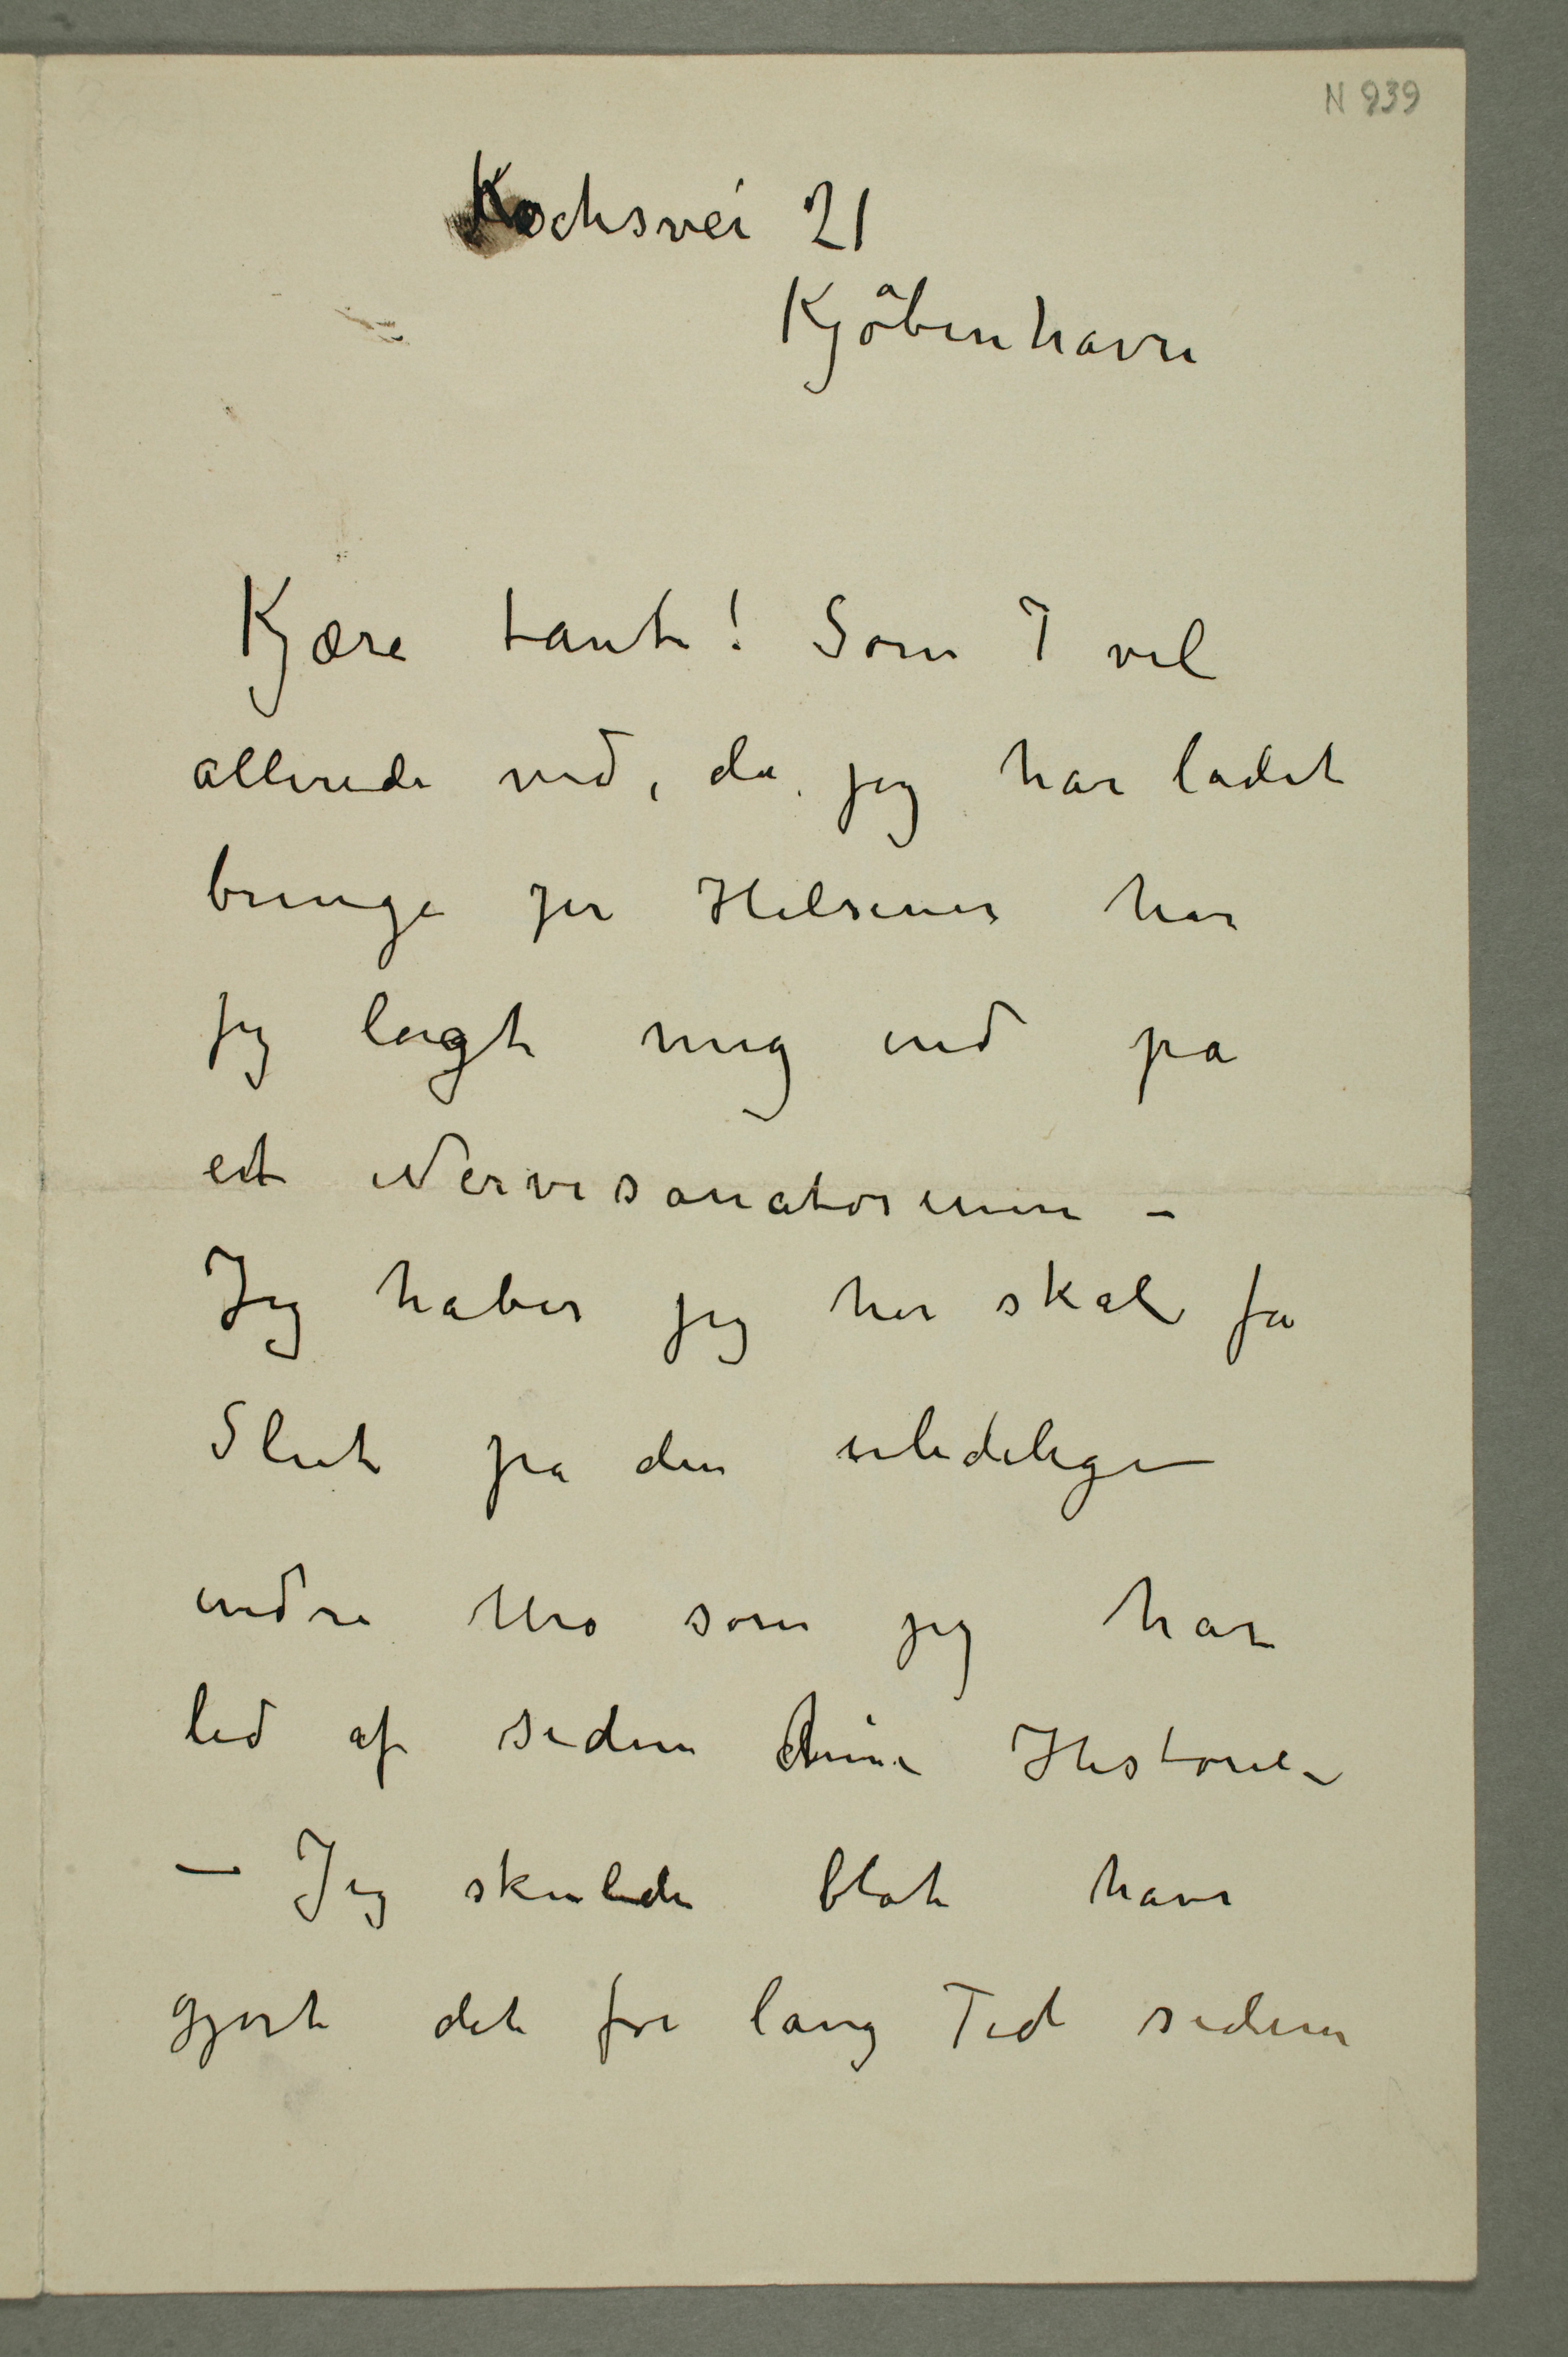 N 939
Kochsvei 21
Kjøbenhavn
Kjære tante! Som I vel
allerede ved, da jeg har ladet
bringe jer Hilsener har
jeg lagt mig ind på
et Nervesanatorium –
Jeg håber jeg her skal få
Slut på den ulidelige
indre Uro som jeg har
lid af siden hine Historier
– Jeg skulde blot have
gjort det for lang Tid siden